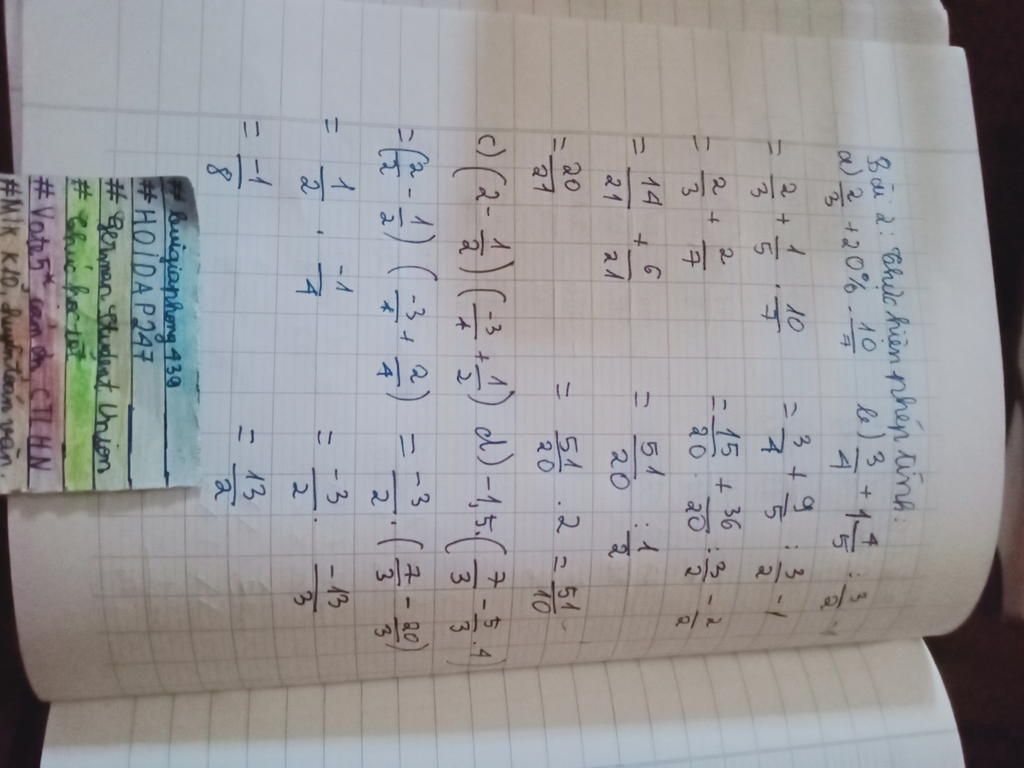 Bài 2: Thực hiện phép tính:
a) 2/3 + 20% . 10/7
= 2/3 + 1/5 . 10/7
= 2/3 + 2/7
= 14/21 + 6/21
= 20/21
b) 3/4 + 1 4/5 : 3/2 - 1
= 3/4 + 9/5 : 3/2 - 1
= 15/20 + 36/20 : 3/2 - 2/2
= 51/20 : 1/2
= 51/20 . 2 = 51/10
c) (2 - 1/2) (-3/4 + 1/2)
= (2/2 - 1/2) (-3/4 + 2/4)
= 1/2 . -1/4
= -1/8
d) -1,5. (7/3 - 5/3 . 4)
= -3/2 . (7/3 - 20/3)
= -3/2 . -13/3
= 13/2
# HOIDAP247
# German Student Union
# Vote 5* cảm ơn CTLHN